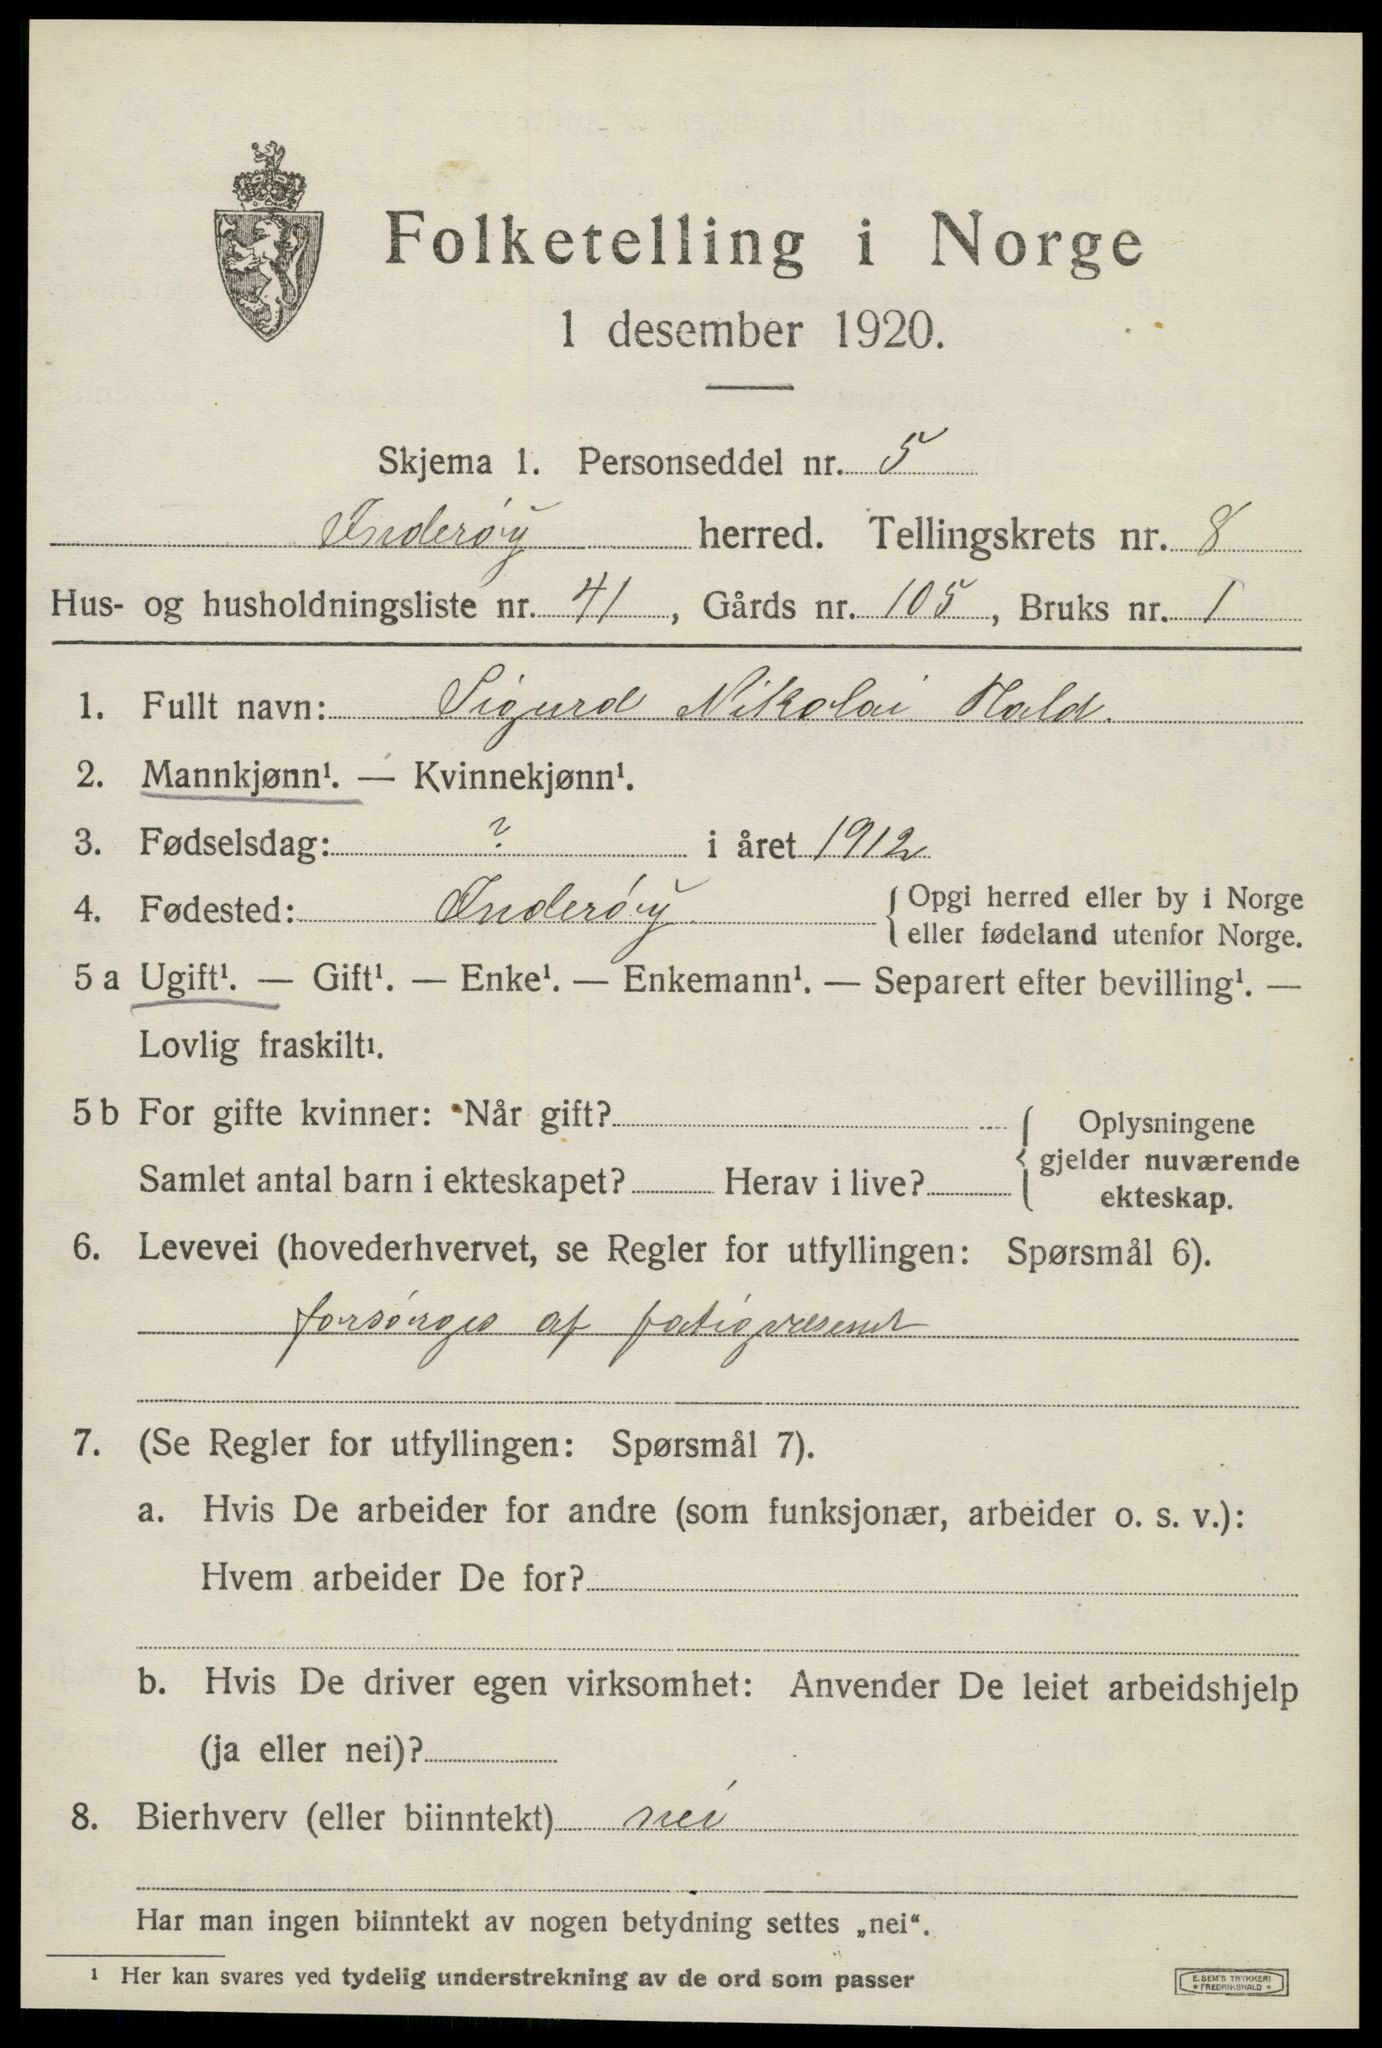 Folketelling i Norge
1 desember 1920.
Skjema 1. Personseddel nr. 5
Inderøy herred. Tellingskrets nr. 8
Hus- og husholdningsliste nr. 41, Gårds nr. 105, Bruks nr. 1
1. Fullt navn: Sigurd Nikolai Hald.
2. Mannkjønn¹. — Kvinnekjønn¹.
3. Fødselsdag: ? i året 1912
4. Fødested: Inderøy. { Opgi herred eller by i Norge
eller fødeland utenfor Norge.
5 a Ugift¹. — Gift¹. — Enke¹. — Enkemann¹. — Separert efter bevilling¹. —
Lovlig fraskilt¹.
5 b For gifte kvinner: Når gift? { Oplysningene
gjelder nuværende
Samlet antal barn i ekteskapet? Herav i live? ekteskap.
6. Levevei (hovederhvervet, se Regler for utfyllingen: Spørsmål 6).
forsørges af fatigvæsenet
7. (Se Regler for utfyllingen: Spørsmål 7).
a. Hvis De arbeider for andre (som funksjonær, arbeider o. s. v.):
Hvem arbeider De for?
b. Hvis De driver egen virksomhet: Anvender De leiet arbeidshjelp
(ja eller nei)?
8. Bierhverv (eller biinntekt) nei
Har man ingen biinntekt av nogen betydning settes „nei“.
¹ Her kan svares ved tydelig understrekning av de ord som passer
E. SEM'S TRYKKERI
• FREDRIKSHALD •